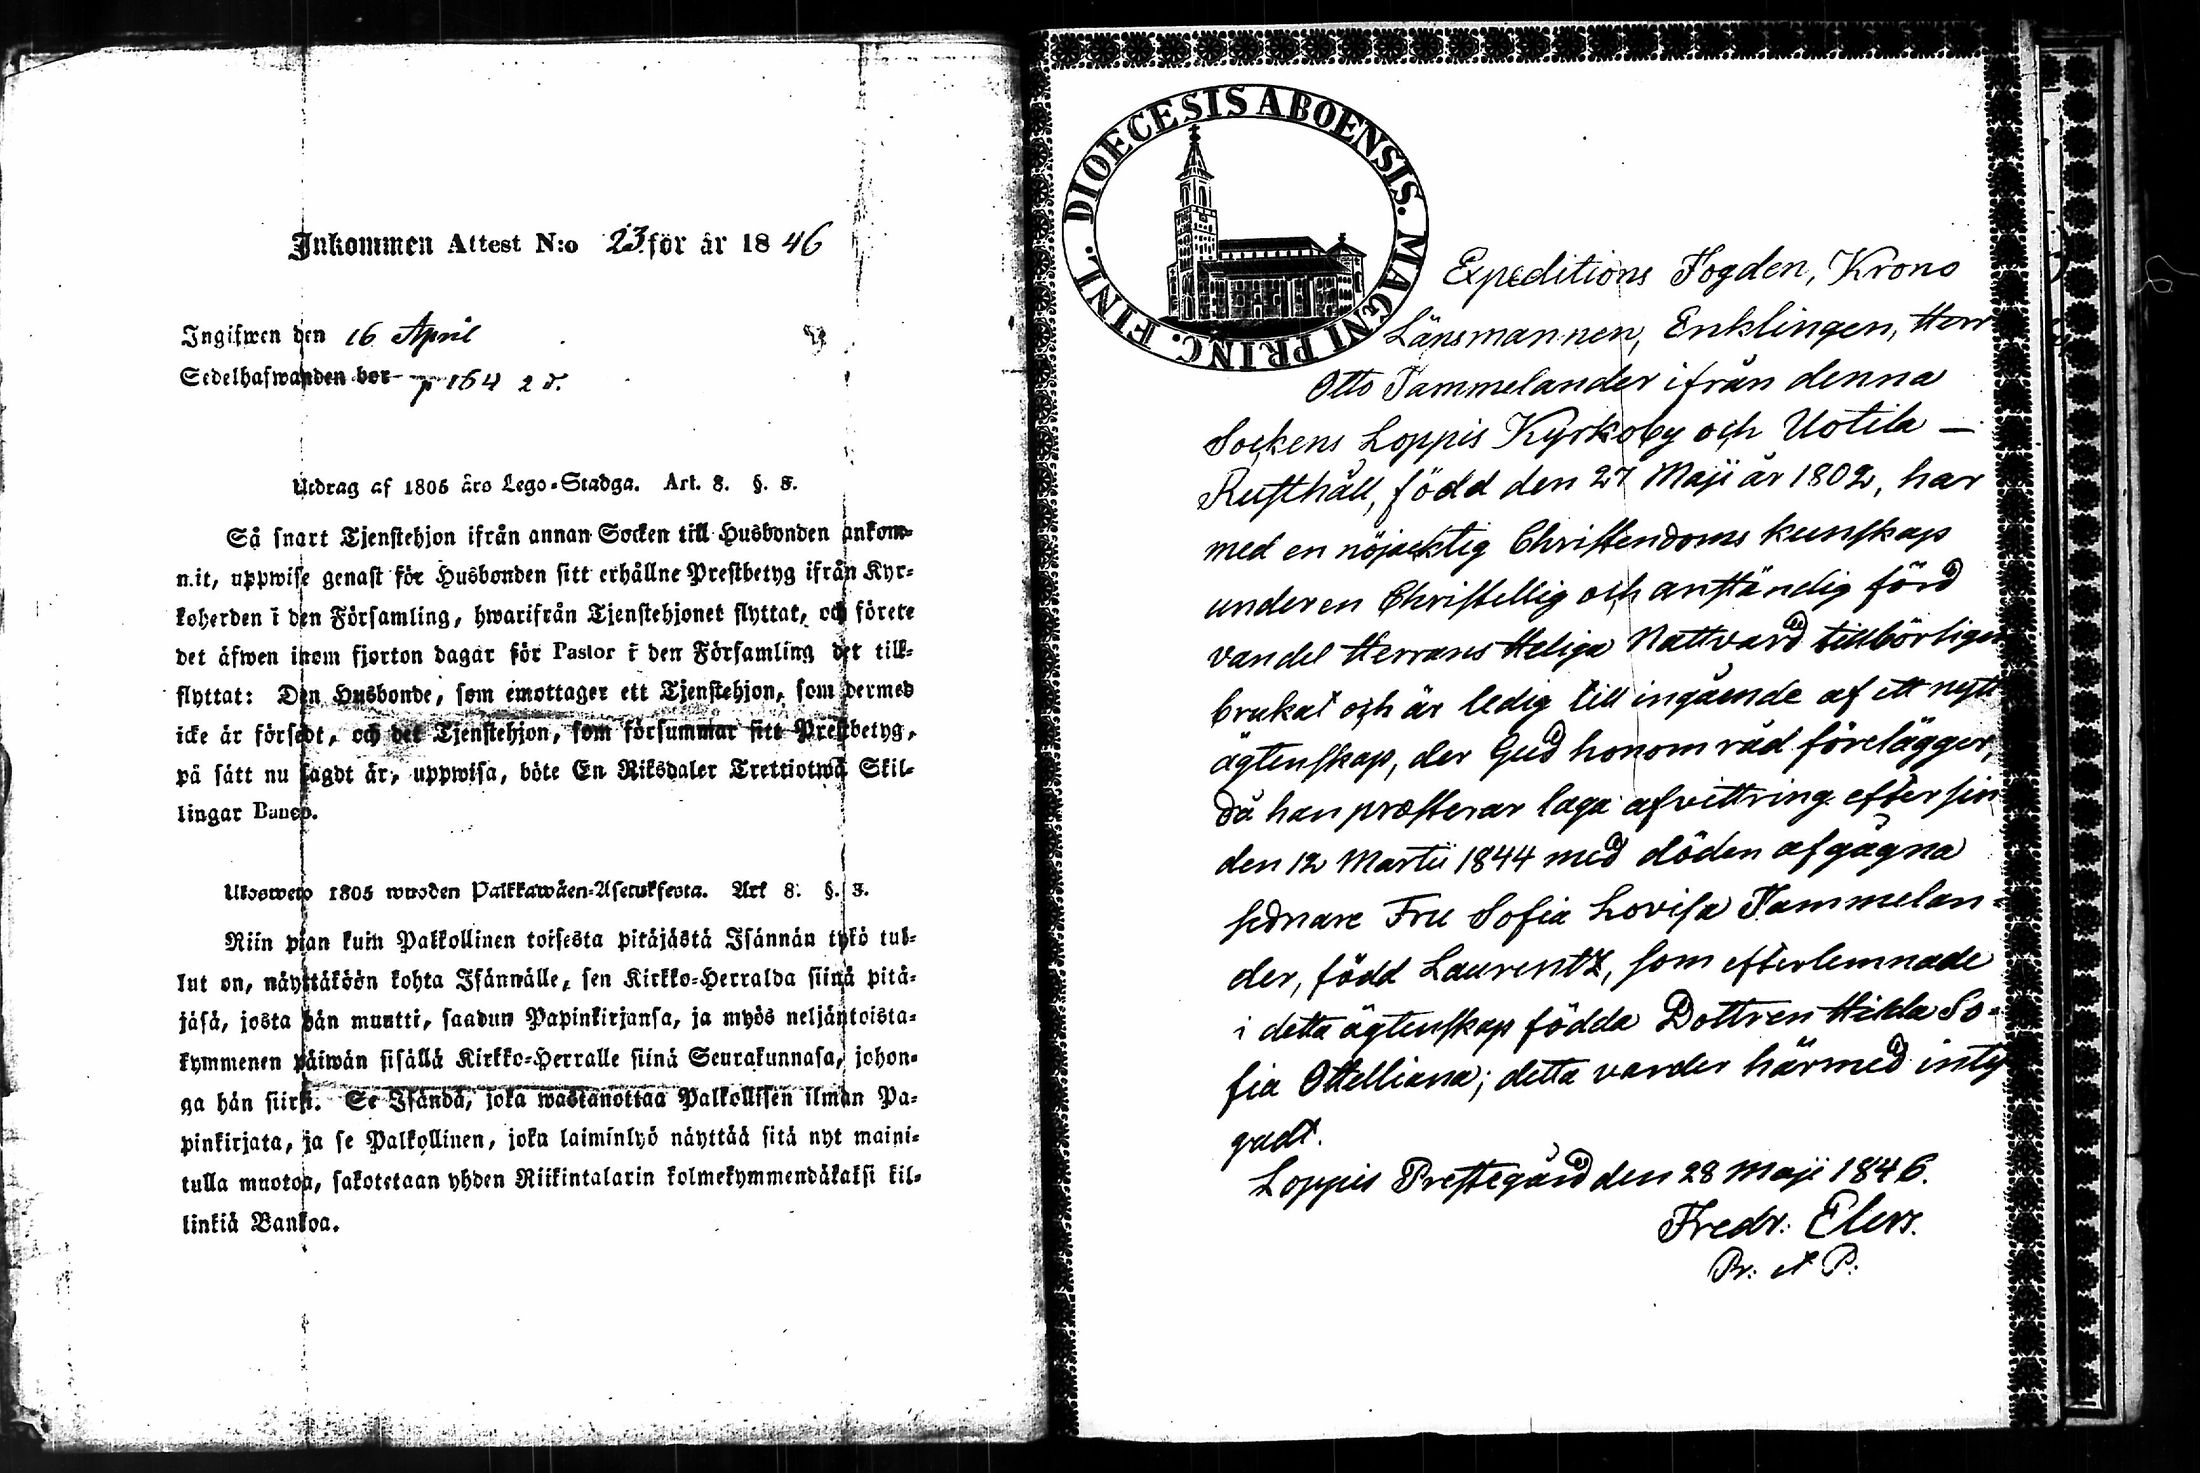 Inkommen Attest N:o 23 för år 1846
Ingifwen den 16 April
Sedelhafwanden bor p 164 2 d.
Utdrag af 1805 års Lego-Stadga. Art. 8. §. 3.
Så snart Tjenstehjon ifrån annan Socken till Husbonden ankom-
mit, uppwise genast för Husbonden sitt erhållne Prestbetyg ifrån Kyr-
koherden i den Församling, hwarifrån Tjenstehjonet flyttat, och förete
det äfwen inom fjorton dagar för Pastor i den Församling det till-
flyttat: Den Husbonde, som emottager ett Tjenstehjon, som dermed
icke är försedt, och det Tjenstehjon, som försummar sitt Prestbetyg,
på sätt nu sagdt är, uppwisa, böte En Riksdaler Trettiotwå Skil-
lingar Banco.
Ulosweto 1805 wuoden Palkkawäen-Asetuksesta. Art 8. §. 3.
Niin pian kuin Palkollinen toisesta pitäjästä Isännän tykö tul-
lut on, näyttäköön kohta Isännälle, sen Kirkko-Herralda siinä pitä-
jäsä, josta hän muutti, saadun Papinkirjansa, ja myös neljäntoista-
kymmenen päiwän sisällä Kirkko-Herralle siinä Seurakunnasa, johon-
ga hän siirsi. Se Isändä, joka wastanottaa Palkollisen ilman Pa-
pinkirjata, ja se Palkollinen, joka laiminlyö näyttää sitä nyt maini-
tulla muotoa, sakotetaan yhden Riikintalarin kolmekymmendäkaksi kil-
linkiä Bankoa.
DIOECESIS ABOENSIS. MAGNI PRINC. FINL.
Expeditions Fogden, Krono
Länsmannen, Enklingen, Herr
Otto Tammelander ifrån denna
Sockens Loppis Kyrkoby och Uotila —
Rusthåll, född den 27 Maji år 1802, har
med en nöjacktig Christendoms kunskap
under en Christellig och anständig förd
vandel Herrans Heliga Nattvard tillbörligen
brukat och är ledig till ingående af ett nytt
ägtenskap, der Gud honom råd förelägger,
då han præsterar laga afvittring efter sin
den 12 Martii 1844 med döden afgågna
sednare Fru Sofia Lovisa Tammelan-
der, född Laurentz, som efterlemnade
i detta ägtenskap födda Dottren Hilda So-
fia Ottelliana; detta varder härmed inty
gadt.
Loppis Prestegård den 28 Maji 1846.
Fredr: Elers.
Pr: et P: